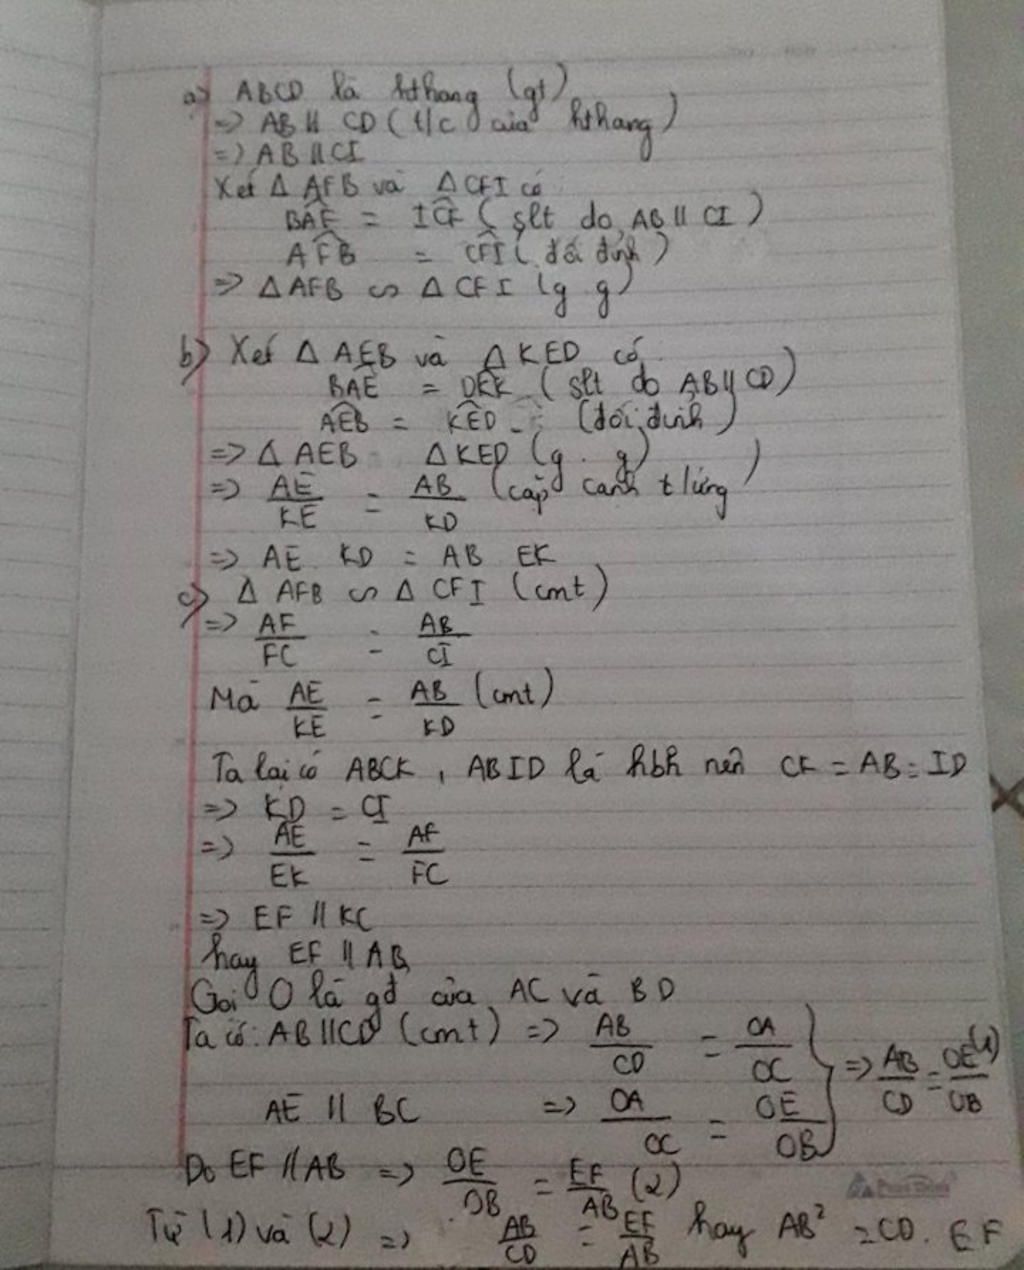 a) ABCD là hthang (gt)
=> AB // CD (t/c của hthang)
=> AB // CI
Xét Δ AFB và Δ CFI có
BÂF = IĈF (slt do AB // CI)
AF̂B = CF̂I (đối đỉnh)
=> Δ AFB ∽ Δ CFI (g g)
b) Xét Δ AEB và Δ KED có
BÂE = DÊK (slt do AB // CD)
AÊB = KÊD (đối đỉnh)
=> Δ AEB Δ KED (g . g)
=> AE/KE = AB/KD (cặp cạnh t/ứng)
=> AE KD = AB EK
c) Δ AFB ∽ Δ CFI (cmt)
=> AF/FC = AB/CI
Mà AE/KE = AB/KD (cmt)
Ta lại có ABCK, ABID là hbh nên CK = AB = ID
=> KD = CI
=> AE/EK = AF/FC
=> EF // KC
hay EF // AB
Gọi O là gđ của AC và BD
Ta có: AB // CD (cmt) => AB/CD = OA/OC
AE // BC => OA/OC = OE/OB
=> AB/CD = OE/OB (1)
Do EF // AB => OE/OB = EF/AB (2)
Từ (1) và (2) => AB/CD = EF/AB hay AB² = CD. EF